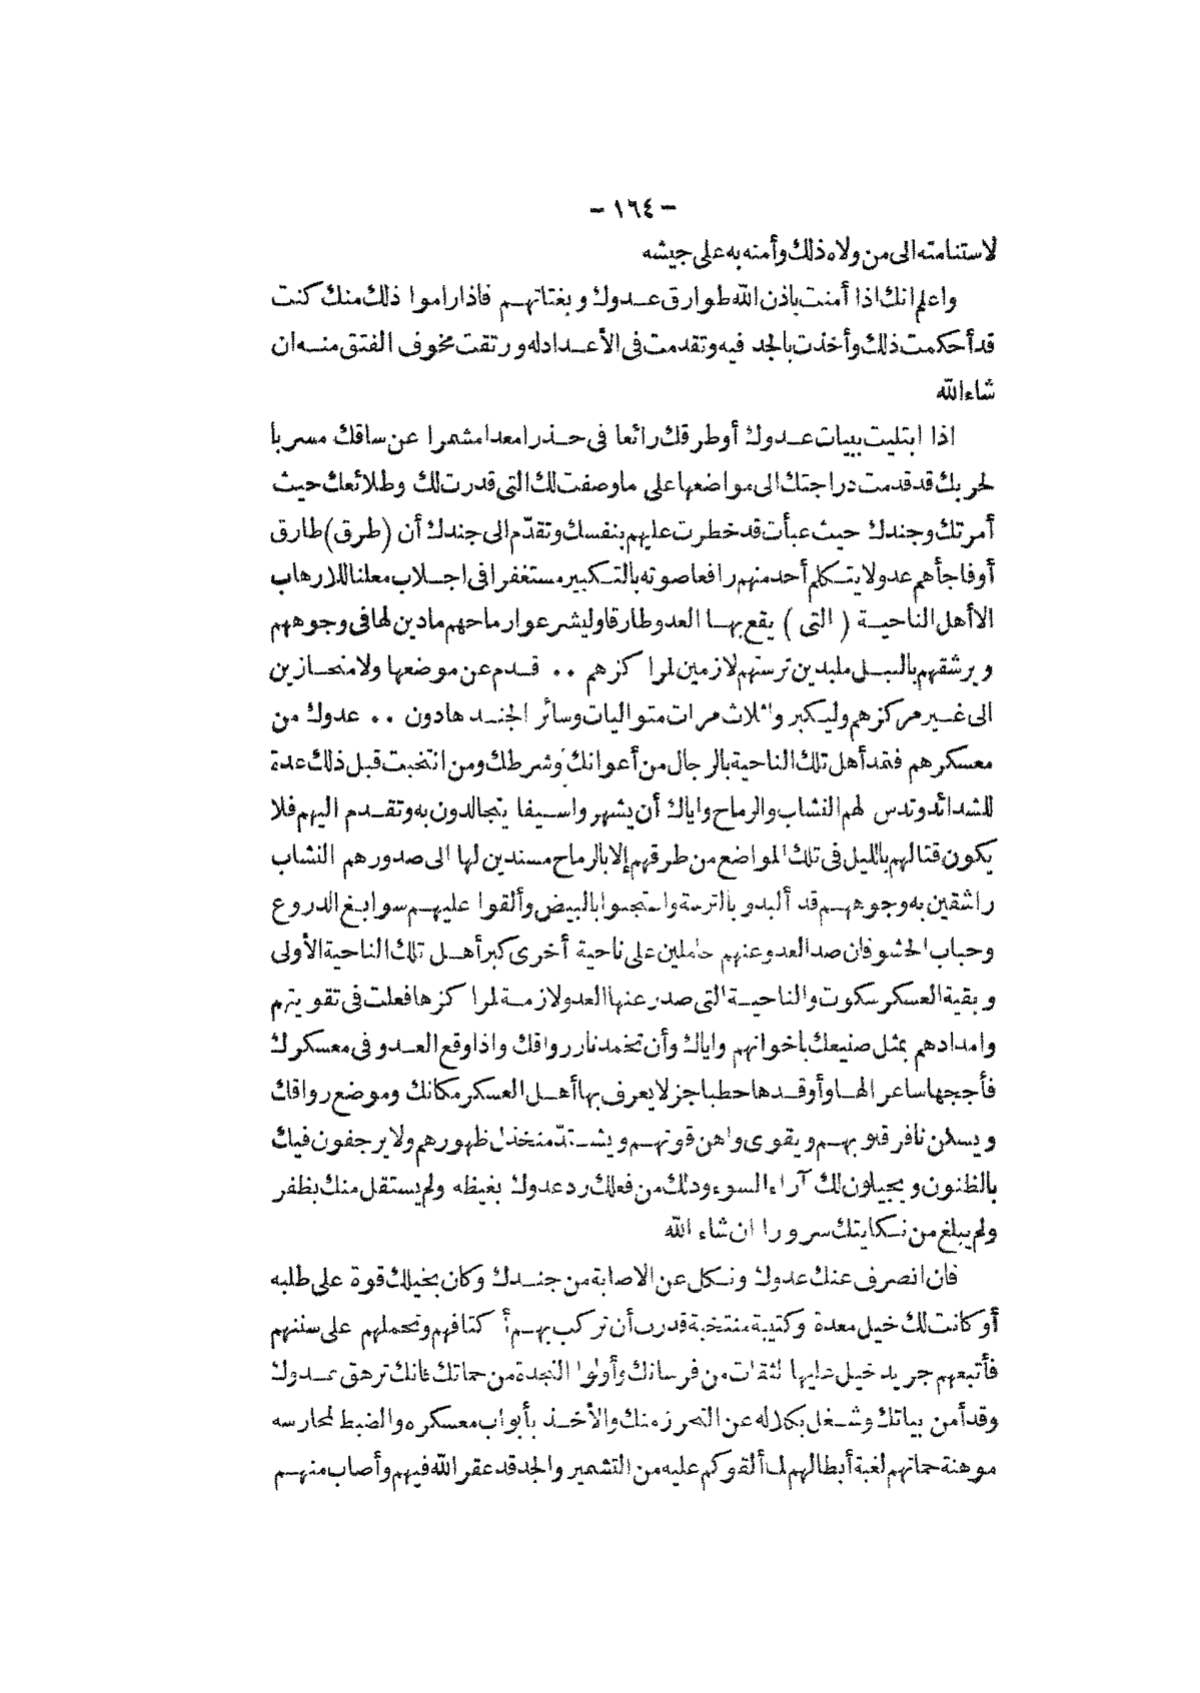 - ١٦٤ -
لاستنامته الى من ولاه ذلك وأمنه به على جيشه
واعلم انك اذا أمنت باذن الله طوارق عدوك وبغتاتهم فاذا راموا ذلك منك كنت
قد أحكمت ذلك وأخذت بالجد فيه وتقدمت فى الأعداد له ورتقت مخوف الفتق منه ان
شاء الله
اذا ابتليت ببيات عدوك أو طرقك رائعا فى حذرا معدا مشمرا عن ساقك مسربا
لحربك قد قدمت دراجتك الى مواضعها على ما وصفت لك التى قدرت لك وطلائعك حيث
أمرتك وجندك حيث عبأت قد خطرت عليهم بنفسك وتقدّم الى جندك أن (طرق) طارق
أو فاجأهم عدو لا يتكلم أحد منهم رافعا صوته بالتكبير مستغفرا فى اجلاب معلنا للارهاب
الا أهل الناحية ( التى ) يقع بها العدو طارقا وليشرعوا رماحهم مادين لها فى وجوههم
ويرشقهم بالنبل ملبدين ترستهم لازمين لمراكزهم .. قدم عن موضعها ولا منحازين
الى غير مركزهم وليكبروا ثلاث مرات متواليات وسائر الجند هادون .. عدوك من
معسكرهم فتمد أهل تلك الناحية بالرجال من أعوانك وشرطك ومن انتخبت قبل ذلك عدة
للشدائد وتدس لهم النشاب والرماح واياك أن يشهروا سيفا يتجالدون به وتقدم اليهم فلا
يكون قتالهم بالليل فى تلك المواضع من طرقهم إلا بالرماح مسندين لها الى صدورهم النشاب
راشقين به وجوههم قد ألبدو بالترسة واستجنوا بالبيض وألقوا عليهم سوابغ الدروع
وحباب الحشو فان صد العدو عنهم حاملين على ناحية أخرى كبر أهل تلك الناحية الأولى
وبقية العسكر سكوت والناحية التى صدر عنها العدو لازمة لمراكزها فعلت فى تقويتهم
وامدادهم بمثل صنيعك باخوانهم واياك وأن تخمد نار رواقك واذا وقع العدو فى معسكرك
فأججها ساعرا لها وأوقدها حطبا جزلا يعرف بها أهل العسكر مكانك وموضع رواقك
ويسكن نافر قلوبهم ويقوى واهن قوتهم ويشتدّ منخذل ظهورهم ولا يرجفون فيك
بالظنون ويجيلون لك آراء السوء وذلك من فعلك رد عدوك بغيظه ولم يستقل منك بظفر
ولم يبلغ من نكايتك سرورا ان شاء الله
فان انصرف عنك عدوك ونكل عن الاصابة من جندك وكان بخيلك قوة على طلبه
أو كانت لك خيل معدة وكتيبة منتخبة قدرت أن تركب بهم أكتافهم وتحملهم على سننهم
فأتبعهم جريد خيل عليها الثقات من فرسانك وأولوا النجدة من حماتك فانك ترهق عدوك
وقد أمن بياتك وشغل بكلاله عن التحرز منك والأخذ بأبواب معسكره والضبط لمحارسه
موهنة حماتهم لغبة أبطالهم لما ألقوكم عليه من التشمير والجد قد عقر الله فيهم وأصاب منهم